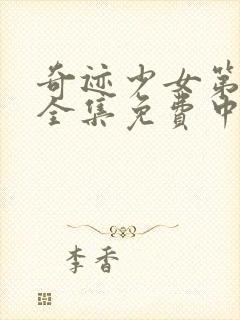 奇迹少女第
全集免費中
李香